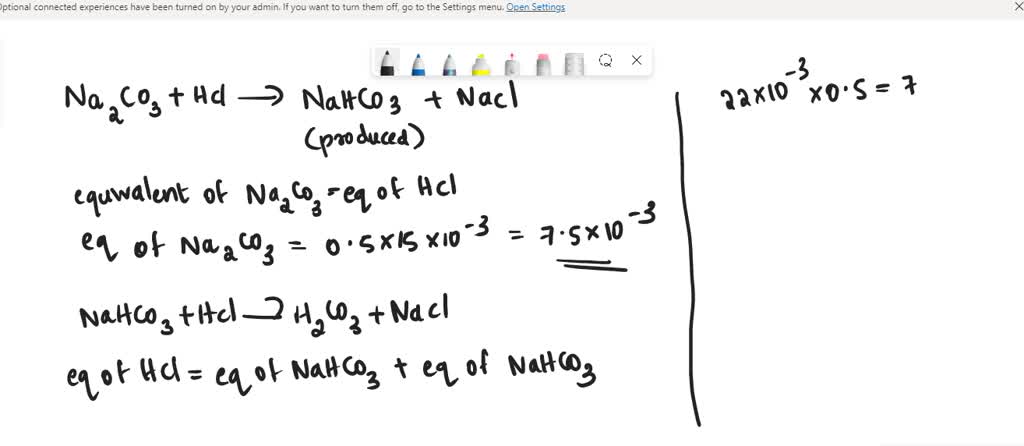 Optional connected experiences have been turned on by your admin. If you want to turn them off, go to the Settings menu. Open Settings
Na₂CO₃ + HCl → NaHCO₃ + NaCl
(produced)
equivalent of Na₂CO₃ = eq of HCl
eq of Na₂CO₃ = 0.5×15×10⁻³ = 7.5×10⁻³
NaHCO₃ + HCl → H₂CO₃ + NaCl
eq of HCl = eq of NaHCO₃ + eq of NaHCO₃
22×10⁻³ ×0.5 = 7